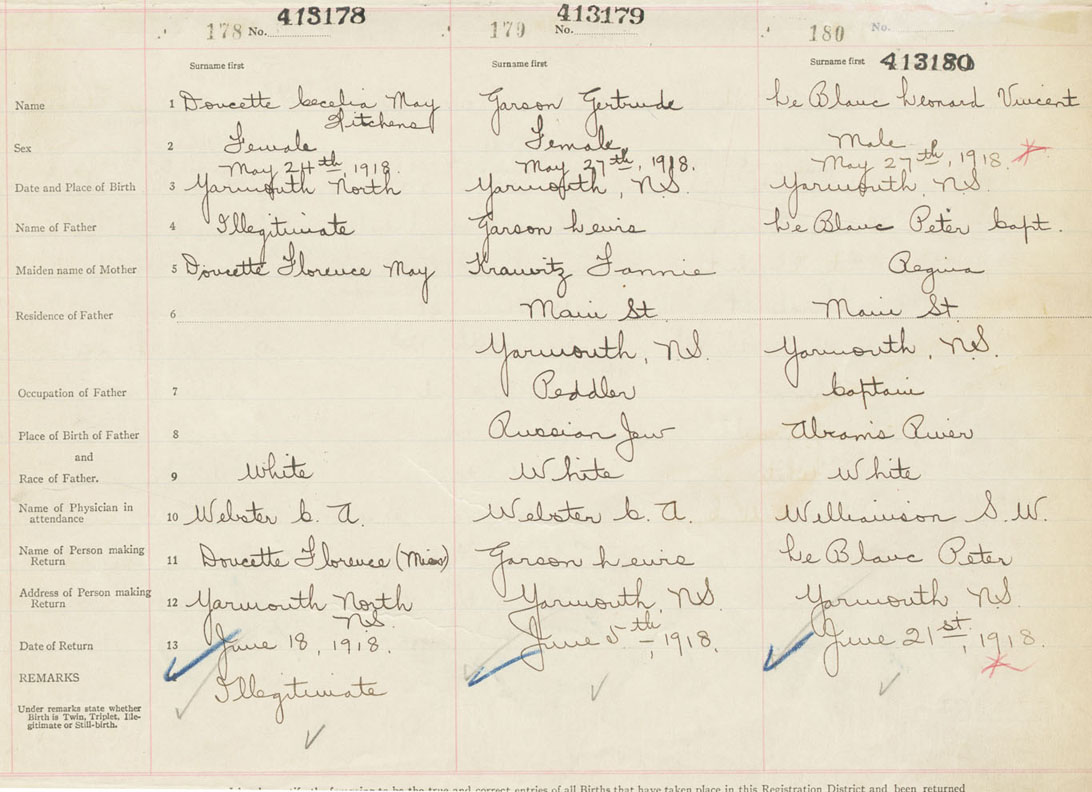 413178 413179
178 No. 179 No. 180 No.
Surname first Surname first Surname first 413180
Name 1 Doucette Cecelia May Garson Gertrude Le Blanc Leonard Vincent
Kitchens
Sex 2 Female Female Male
May 24th, 1918. May 27th, 1918. May 27th, 1918.
Date and Place of Birth 3 Yarmouth North Yarmouth, N.S. Yarmouth, N.S.
Name of Father 4 Illegitimate Garson Lewis Le Blanc Peter Capt.
Maiden name of Mother 5 Doucette Florence May Krawitz Fannie Regina
Residence of Father 6 Main St. Main St.
Yarmouth, N.S. Yarmouth, N.S.
Occupation of Father 7 Peddler Captain
Place of Birth of Father 8 Russian Jew Abram's River
and
Race of Father. 9 White White White
Name of Physician in
attendance 10 Webster C. A. Webster C. A. Williamson S. W.
Name of Person making
Return 11 Doucette Florence (Miss) Garson Lewis Le Blanc Peter
Address of Person making
Return 12 Yarmouth North Yarmouth, N.S. Yarmouth, N.S.
N.S.
Date of Return 13 June 18, 1918. June 5th, 1918. June 21st, 1918.
REMARKS
Illegitimate
Under remarks state whether
Birth is Twin, Triplet, Ille-
gitimate or Still-birth.
to be the true and correct entries of all Births that have taken place in this Registration District and been returned